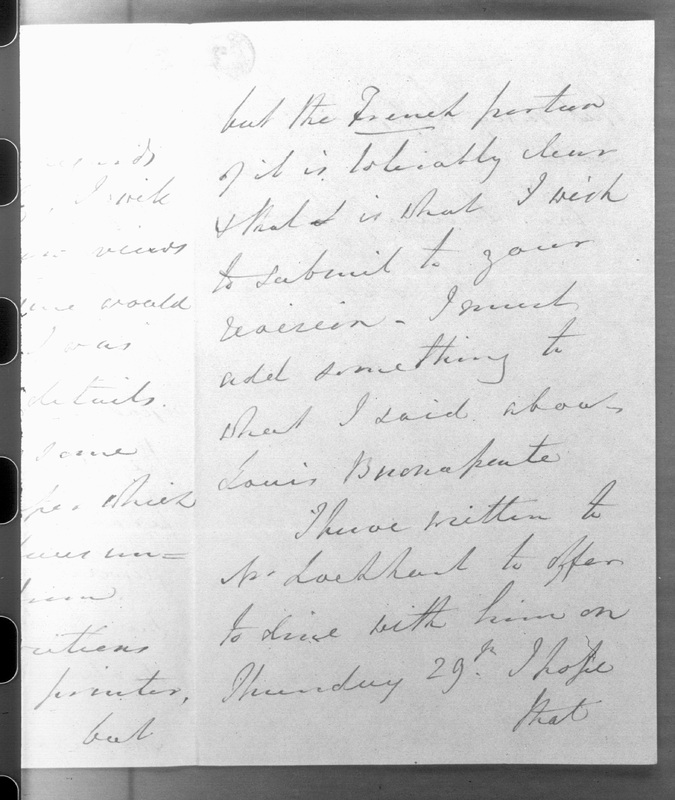 I wish
views
would
I was
details.
some
which
printer,
but
but the French portion
of it is tolerably clear
& that is what I wish
to submit to your
revision - I must
add something to
what I said about
Louis Buonaparte
I have written to
Mr Lockhart to offer
to dine with him on
Thursday 29th. I hope
that